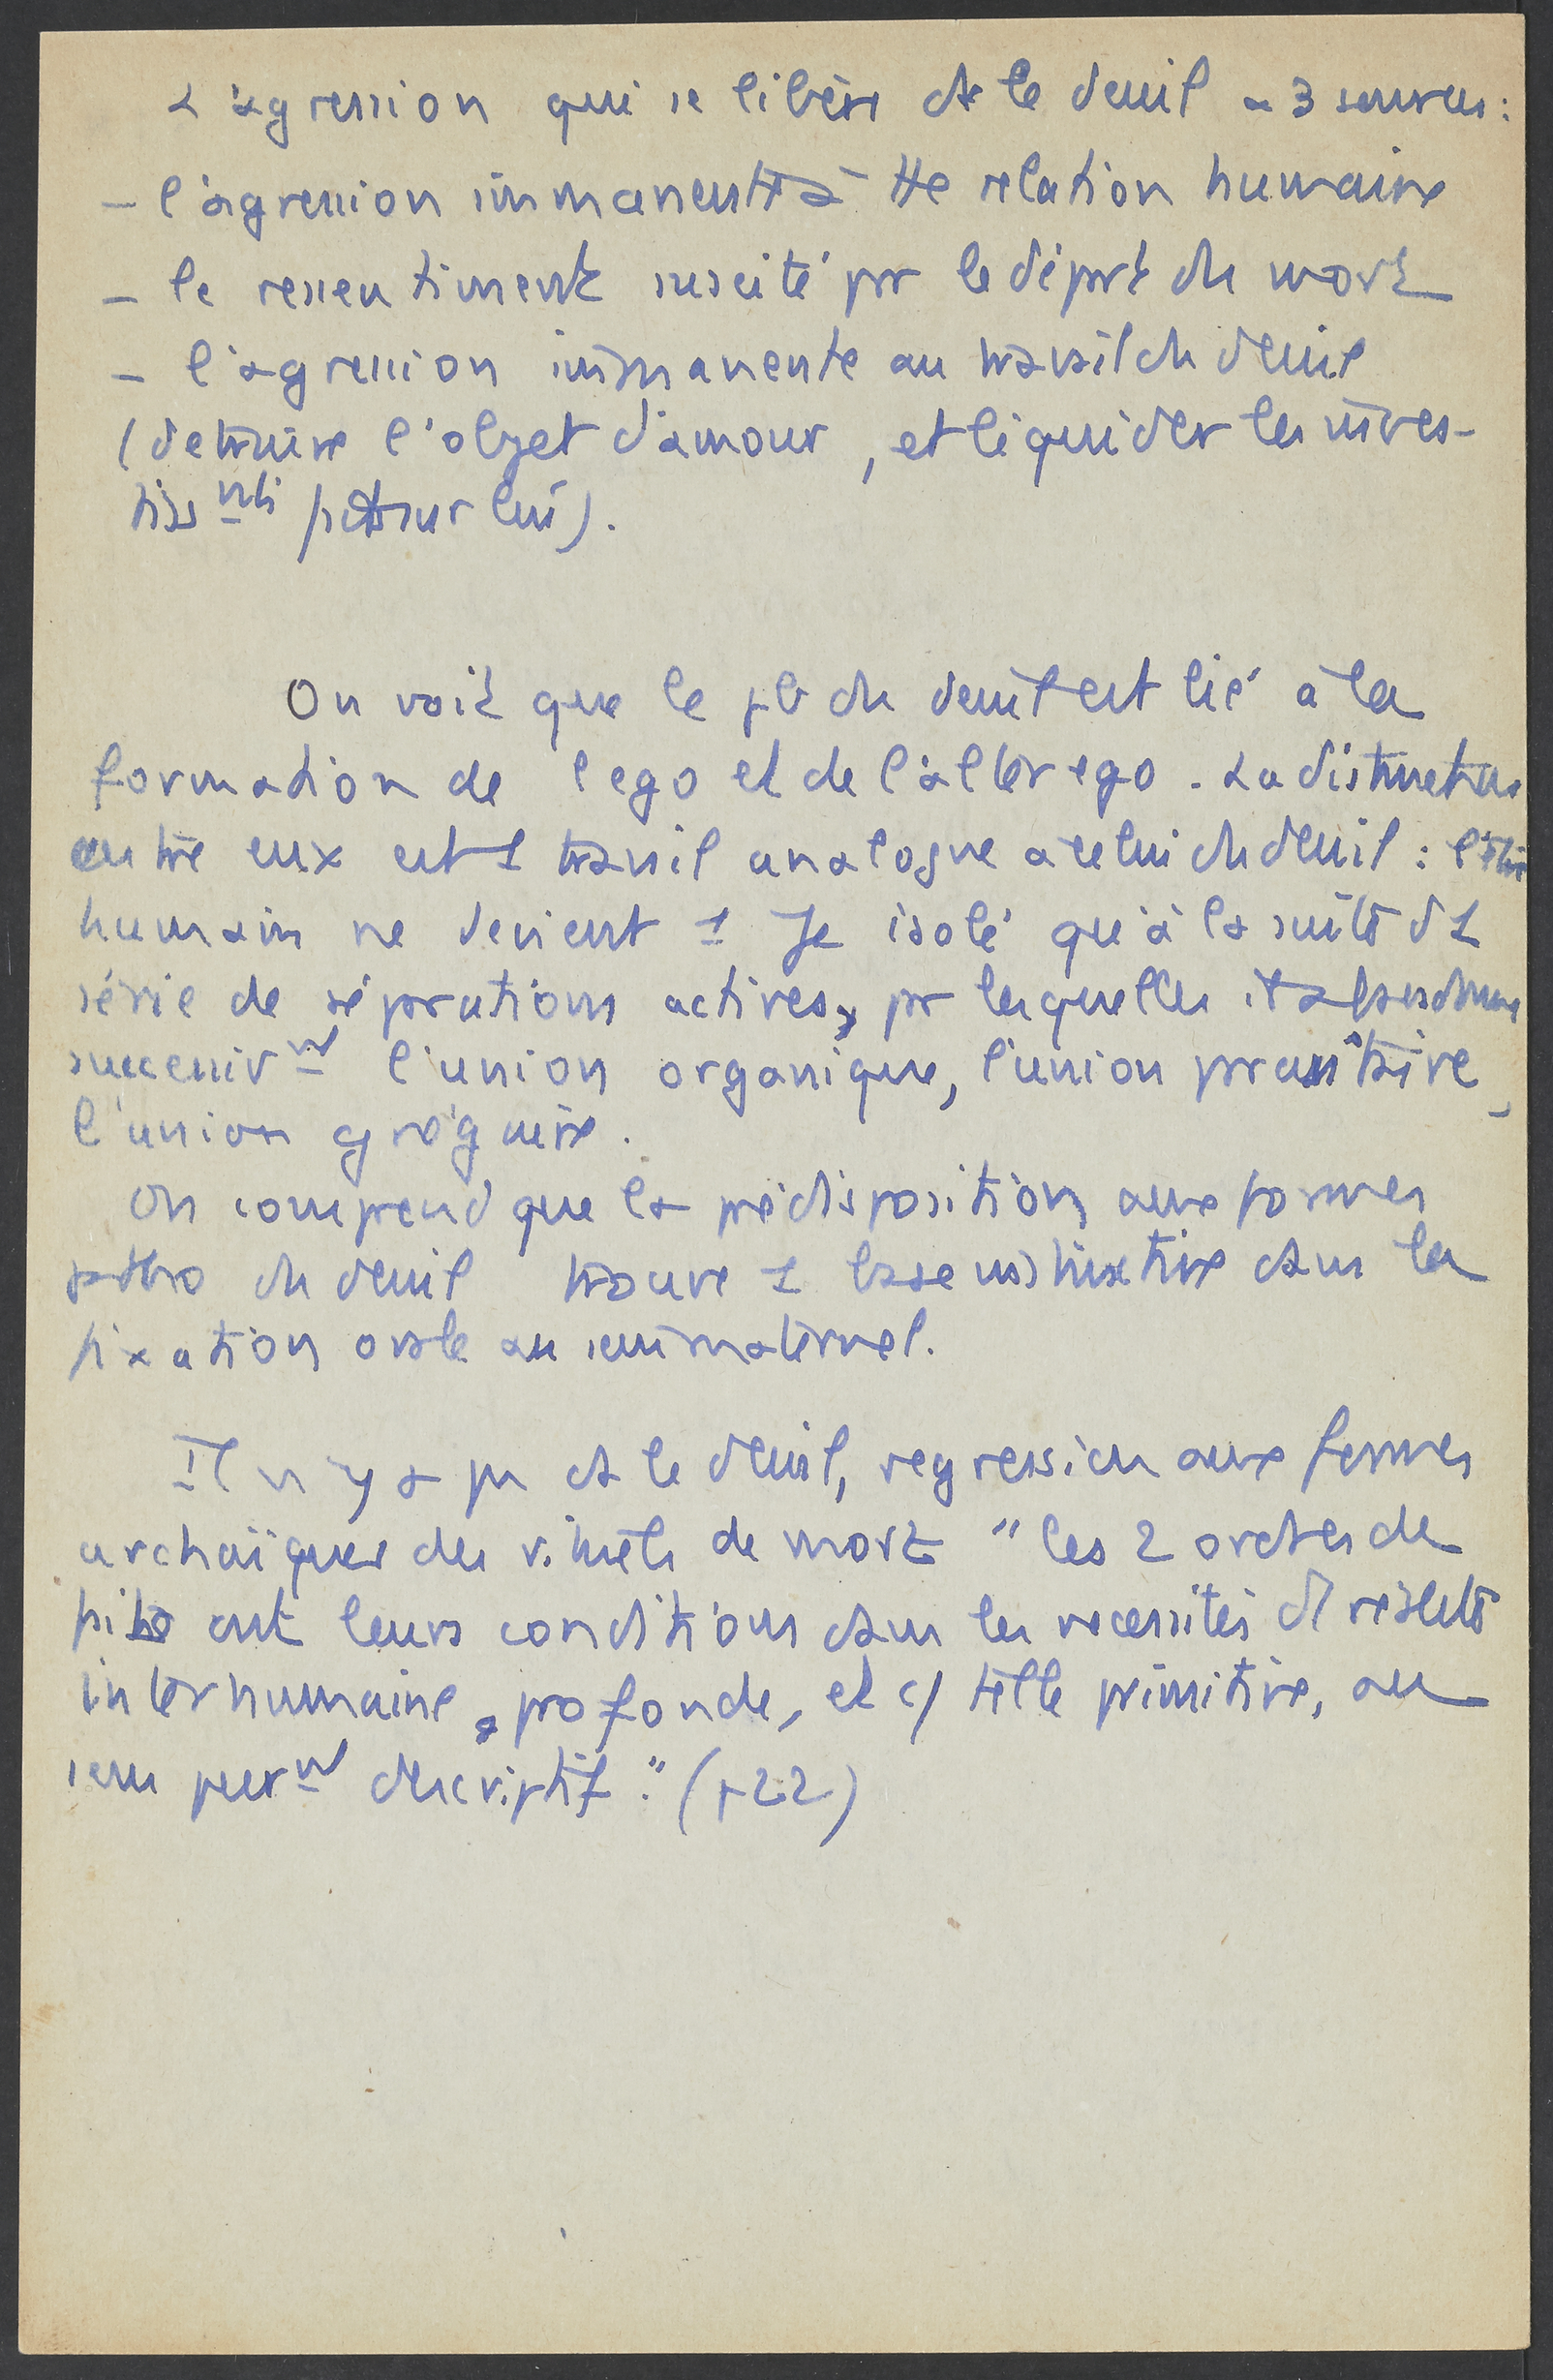 L'agression qui se libère ds le deuil a 3 sources :
– l'agression immanente à tte relation humaine
– le ressentiment suscité pr le départ du mort
– l'agression immanente au travail du deuil
(détruire l'objet d'amour, et liquider les inves-
tissnts faits sur lui).
On voit que le pb du deuil est lié à la
formation de l'ego et de l'alter ego. La distinction
entre eux est 1 travail analogue à celui du deuil : l'être
humain ne devient 1 Je isolé qu'à la suite d'1
série de séparations actives, pr lesquelles il abandonne
successivnt l'union organique, l'union parasitaire,
l'union grégaire.
On comprend que la prédisposition aux formes
patho du deuil trouve 1 base instinctive dans la
fixation orale au sein maternel.
Il n'y a pas ds le deuil, régression aux formes
archaïques des rituels de mort "les 2 ordres de
faits ont leurs conditions dans les nécessités d'1 réalité
interhumaine, profonde, et c/ telle primitive, au
sens purnt descriptif." (p 22)